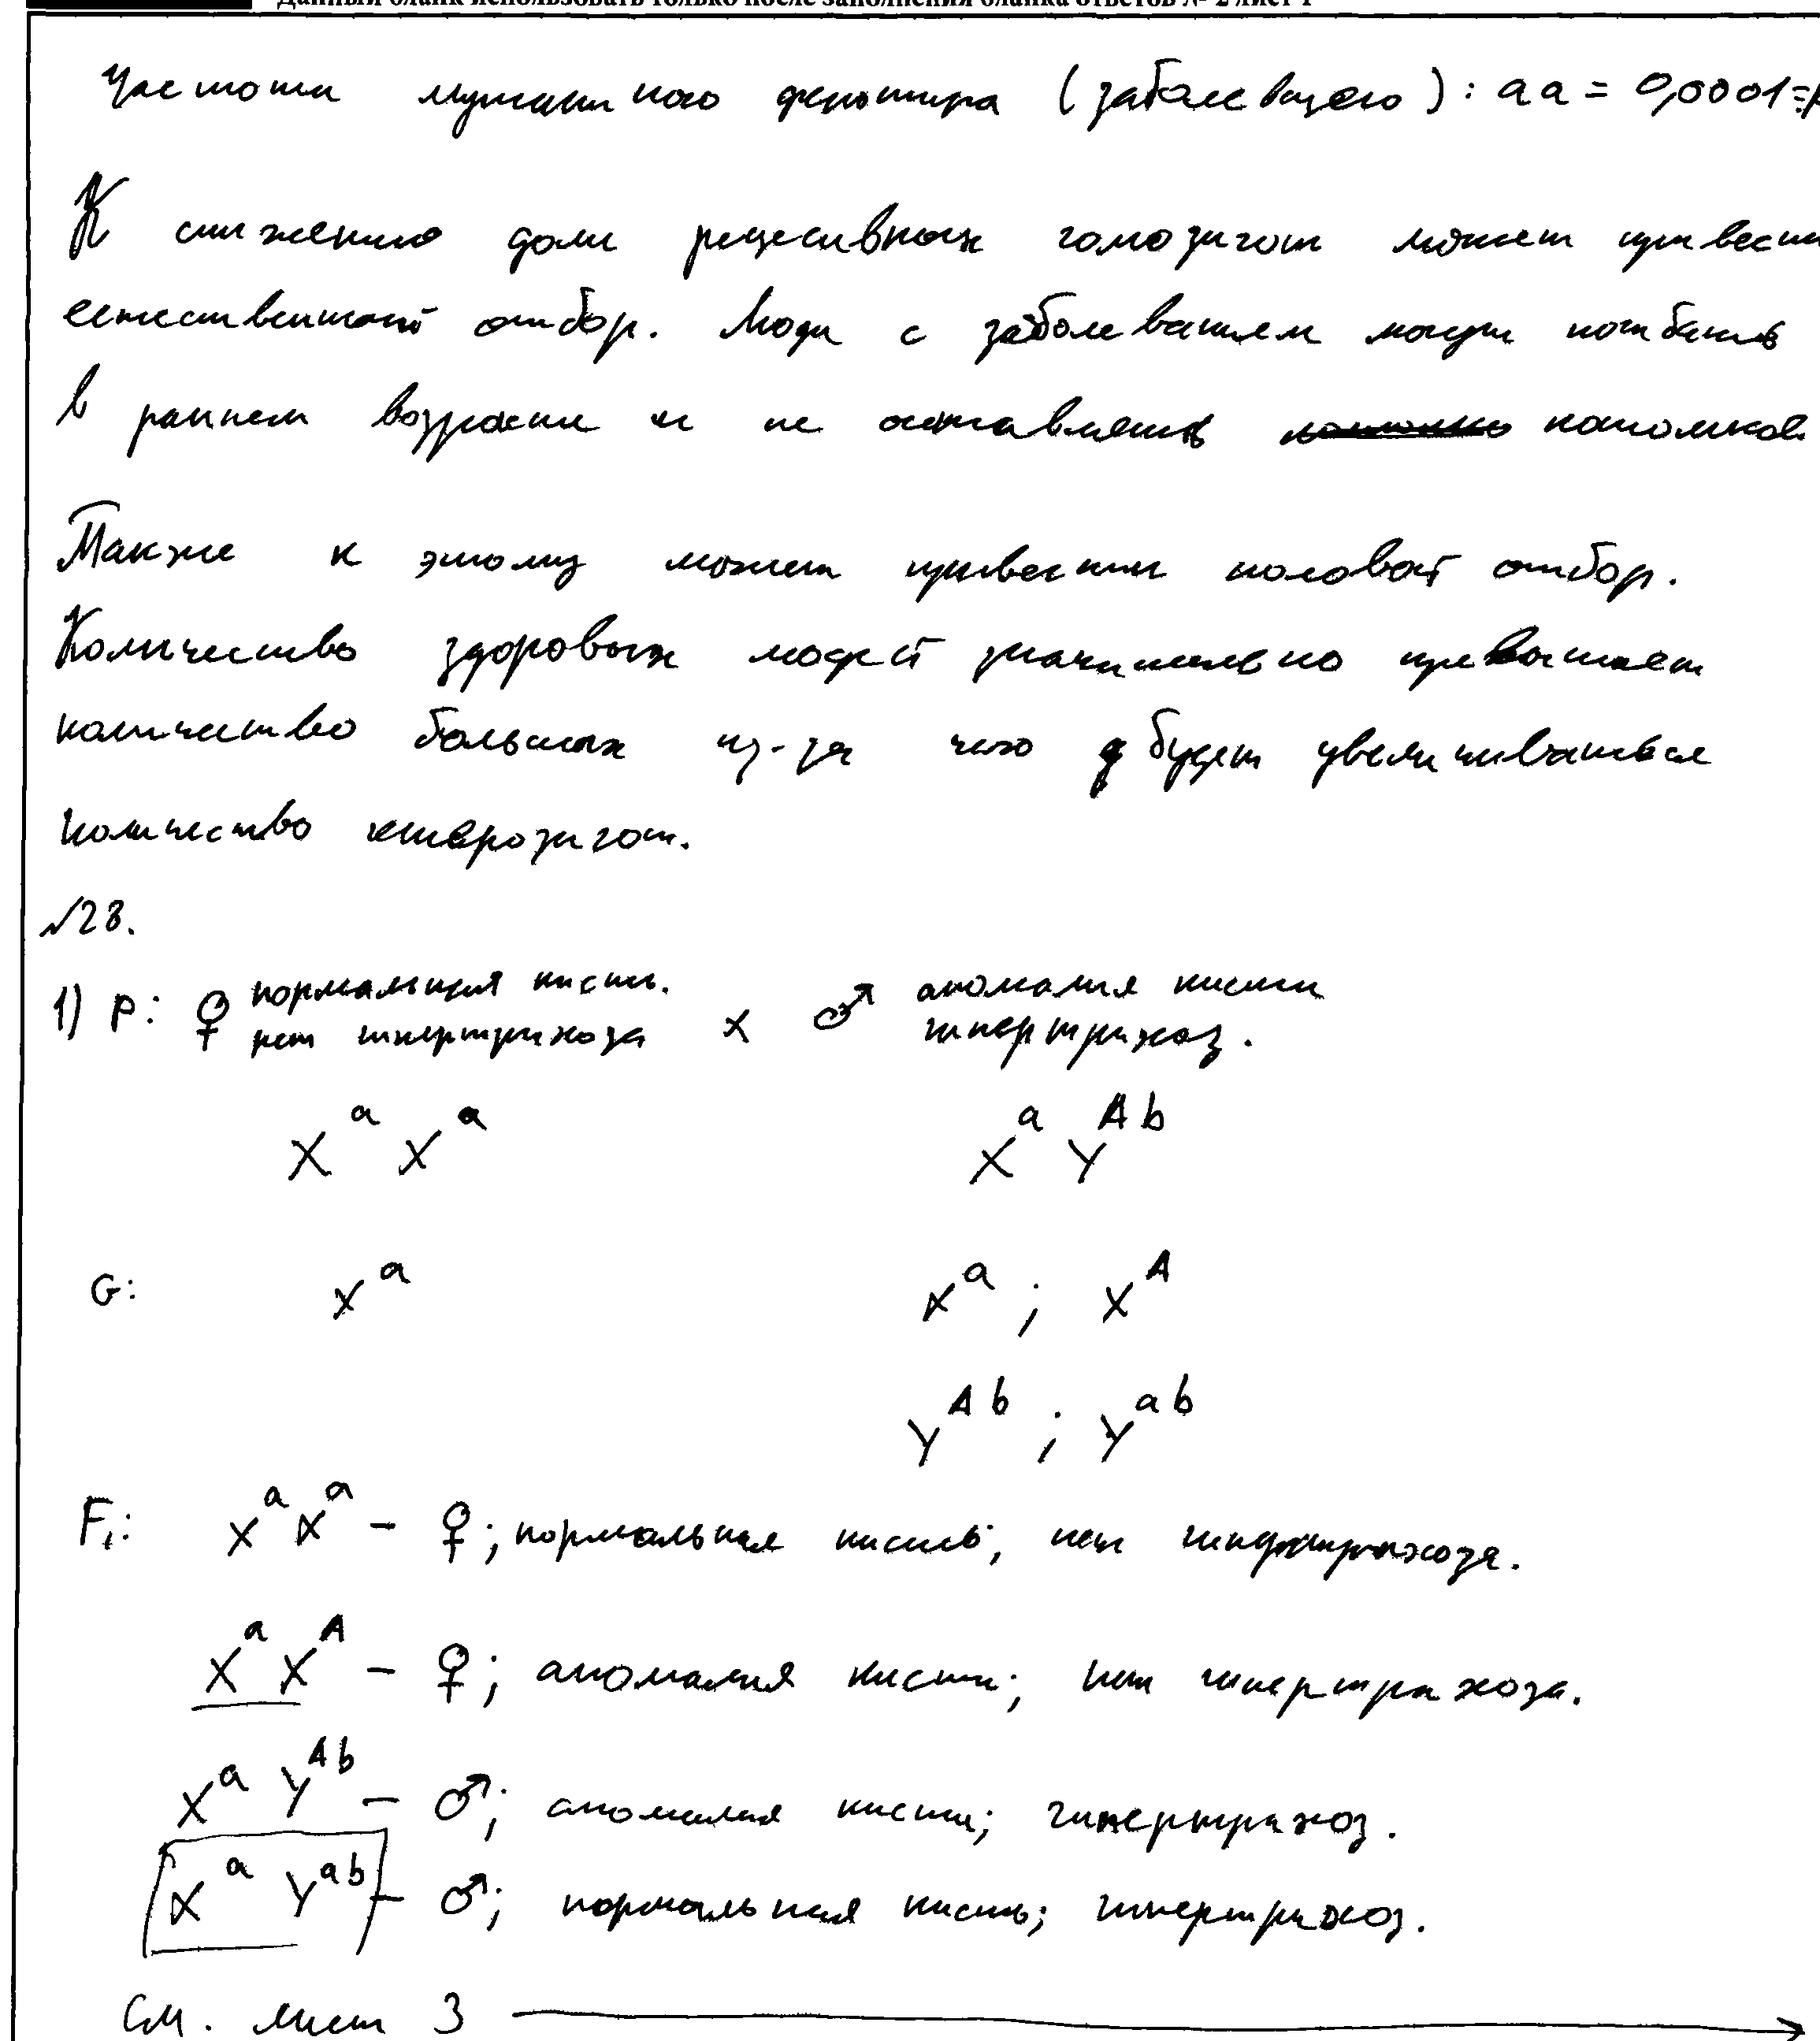 Данный бланк использовать только после заполнения бланка ответов № 2 лист 1
Частота мутантного фенотипа (заболевшего): aa = 0,0001 =
К снижению доли рецессивных гомозигот может привести
естественный отбор. Люди с заболеванием могут погибать
в раннем возрасте и не оставлять потомков.
Также к этому может привести половой отбор.
Количество здоровых людей значительно превышает
количество больных из-за чего будет увеличиваться
количество гетерозигот.
№28.
1) P: ♀ нормальная кисть. нет гипертрихоза x ♂ аномалия кисти гипертрихоз.
X^a X^a X^a Y^Ab
G: X^a X^a ; X^A
Y^Ab ; Y^ab
F₁: X^a X^a – ♀; нормальная кисть; нет гипертрихоза.
X^a X^A – ♀; аномалия кисти; нет гипертрихоза.
X^a Y^Ab – ♂; аномалия кисти; гипертрихоз.
X^a Y^ab – ♂; нормальная кисть; гипертрихоз.
См. лист 3 →